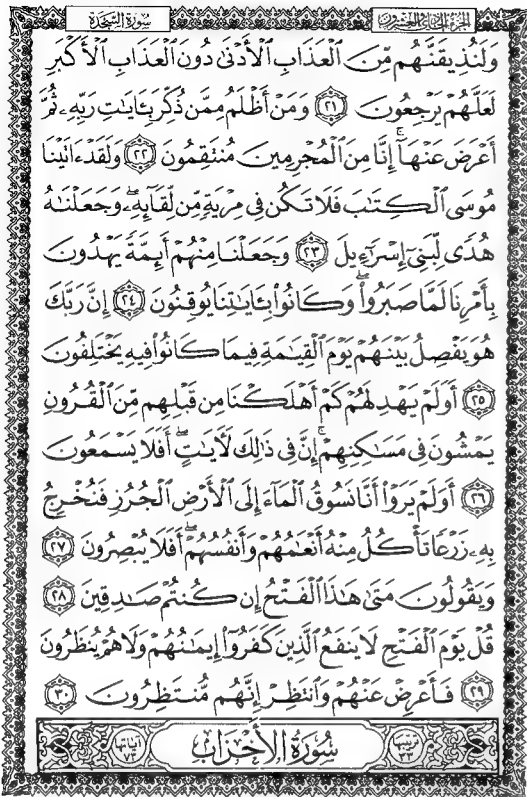 سُورَةُ السَّجْدَةِ
الجزء الحادي والعشرون
وَلَنُذِيقَنَّهُم مِّنَ ٱلْعَذَابِ ٱلْأَدْنَىٰ دُونَ ٱلْعَذَابِ ٱلْأَكْبَرِ
لَعَلَّهُمْ يَرْجِعُونَ ٢١ وَمَنْ أَظْلَمُ مِمَّن ذُكِّرَ بِـَٔايَـٰتِ رَبِّهِۦ ثُمَّ
أَعْرَضَ عَنْهَآ ۚ إِنَّا مِنَ ٱلْمُجْرِمِينَ مُنتَقِمُونَ ٢٢ وَلَقَدْ ءَاتَيْنَا
مُوسَى ٱلْكِتَـٰبَ فَلَا تَكُن فِى مِرْيَةٍ مِّن لِّقَآئِهِۦ ۖ وَجَعَلْنَـٰهُ
هُدًى لِّبَنِىٓ إِسْرَٰٓءِيلَ ٢٣ وَجَعَلْنَا مِنْهُمْ أَئِمَّةً يَهْدُونَ
بِأَمْرِنَا لَمَّا صَبَرُوا۟ ۖ وَكَانُوا۟ بِـَٔايَـٰتِنَا يُوقِنُونَ ٢٤ إِنَّ رَبَّكَ
هُوَ يَفْصِلُ بَيْنَهُمْ يَوْمَ ٱلْقِيَـٰمَةِ فِيمَا كَانُوا۟ فِيهِ يَخْتَلِفُونَ
٢٥ أَوَلَمْ يَهْدِ لَهُمْ كَمْ أَهْلَكْنَا مِن قَبْلِهِم مِّنَ ٱلْقُرُونِ
يَمْشُونَ فِى مَسَـٰكِنِهِمْ ۚ إِنَّ فِى ذَٰلِكَ لَـَٔايَـٰتٍ ۖ أَفَلَا يَسْمَعُونَ
٢٦ أَوَلَمْ يَرَوْا۟ أَنَّا نَسُوقُ ٱلْمَآءَ إِلَى ٱلْأَرْضِ ٱلْجُرُزِ فَنُخْرِجُ
بِهِۦ زَرْعًا تَأْكُلُ مِنْهُ أَنْعَـٰمُهُمْ وَأَنفُسُهُمْ ۖ أَفَلَا يُبْصِرُونَ ٢٧
وَيَقُولُونَ مَتَىٰ هَـٰذَا ٱلْفَتْحُ إِن كُنتُمْ صَـٰدِقِينَ ٢٨
قُلْ يَوْمَ ٱلْفَتْحِ لَا يَنفَعُ ٱلَّذِينَ كَفَرُوٓا۟ إِيمَـٰنُهُمْ وَلَا هُمْ يُنظَرُونَ
٢٩ فَأَعْرِضْ عَنْهُمْ وَٱنتَظِرْ إِنَّهُم مُّنتَظِرُونَ ٣٠
ترتيبها ٣٣ سُورَةُ الأَحْزَابِ آياتها ٧٣